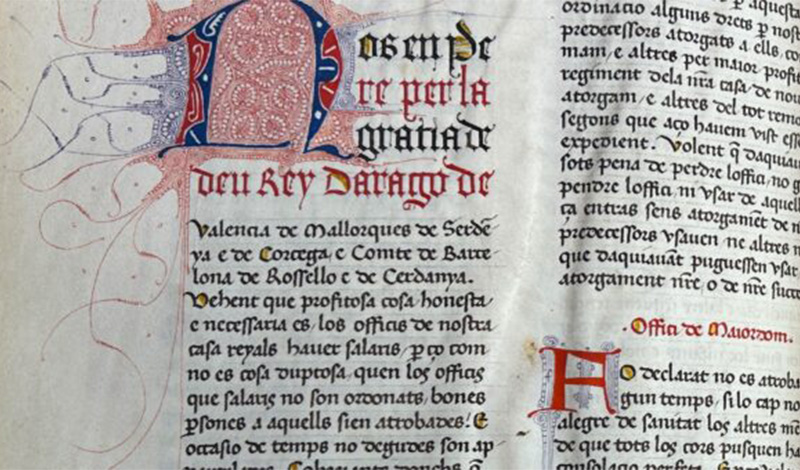 Nos en Pe
re per la
gratia de
deu Rey Darago de
Valencia de Mallorques de Serde
ya e de Corcega, e Comte de Barce
lona de Rossello e de Cerdanya.
Vehent que profitosa cosa honesta
e necessaria es, los officis de nostra
casa reyals hauer salaris, ꝑ ço com
no es cosa duptosa, quen los officis
que salaris no son ordonats, bones
ꝑsones a aquells sien atrobades: E
occasio de temps no degudes son ap
ordinacio alguns drets ꝑ nost
predecessors atorgats a ells, co
mam, e altres per maior profit
regiment dela nr̃a casa de nou
atorgam, e altres del tot remo
segons que aço hauem vist ess
expedient. Volent q̃ daquiau
sots pena de perdre loffici, no g
pendre loffici ni vsar de aquell
ça entras sens atorgam̃et de n
predecessors vsauen, ne altres n
que daquiauāt puguessen vsar
atorgament nr̃e, o de nr̃e succ
Offici de Maiordom.
Ao declarat no es atroba
gun temps, si lo cap no
alegre de sanitat los altres mē
de que tots los cors pusquen ha